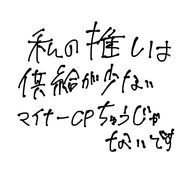 私の推しは
供給が少ない
マイナーCPちゅうじゃ
ないです